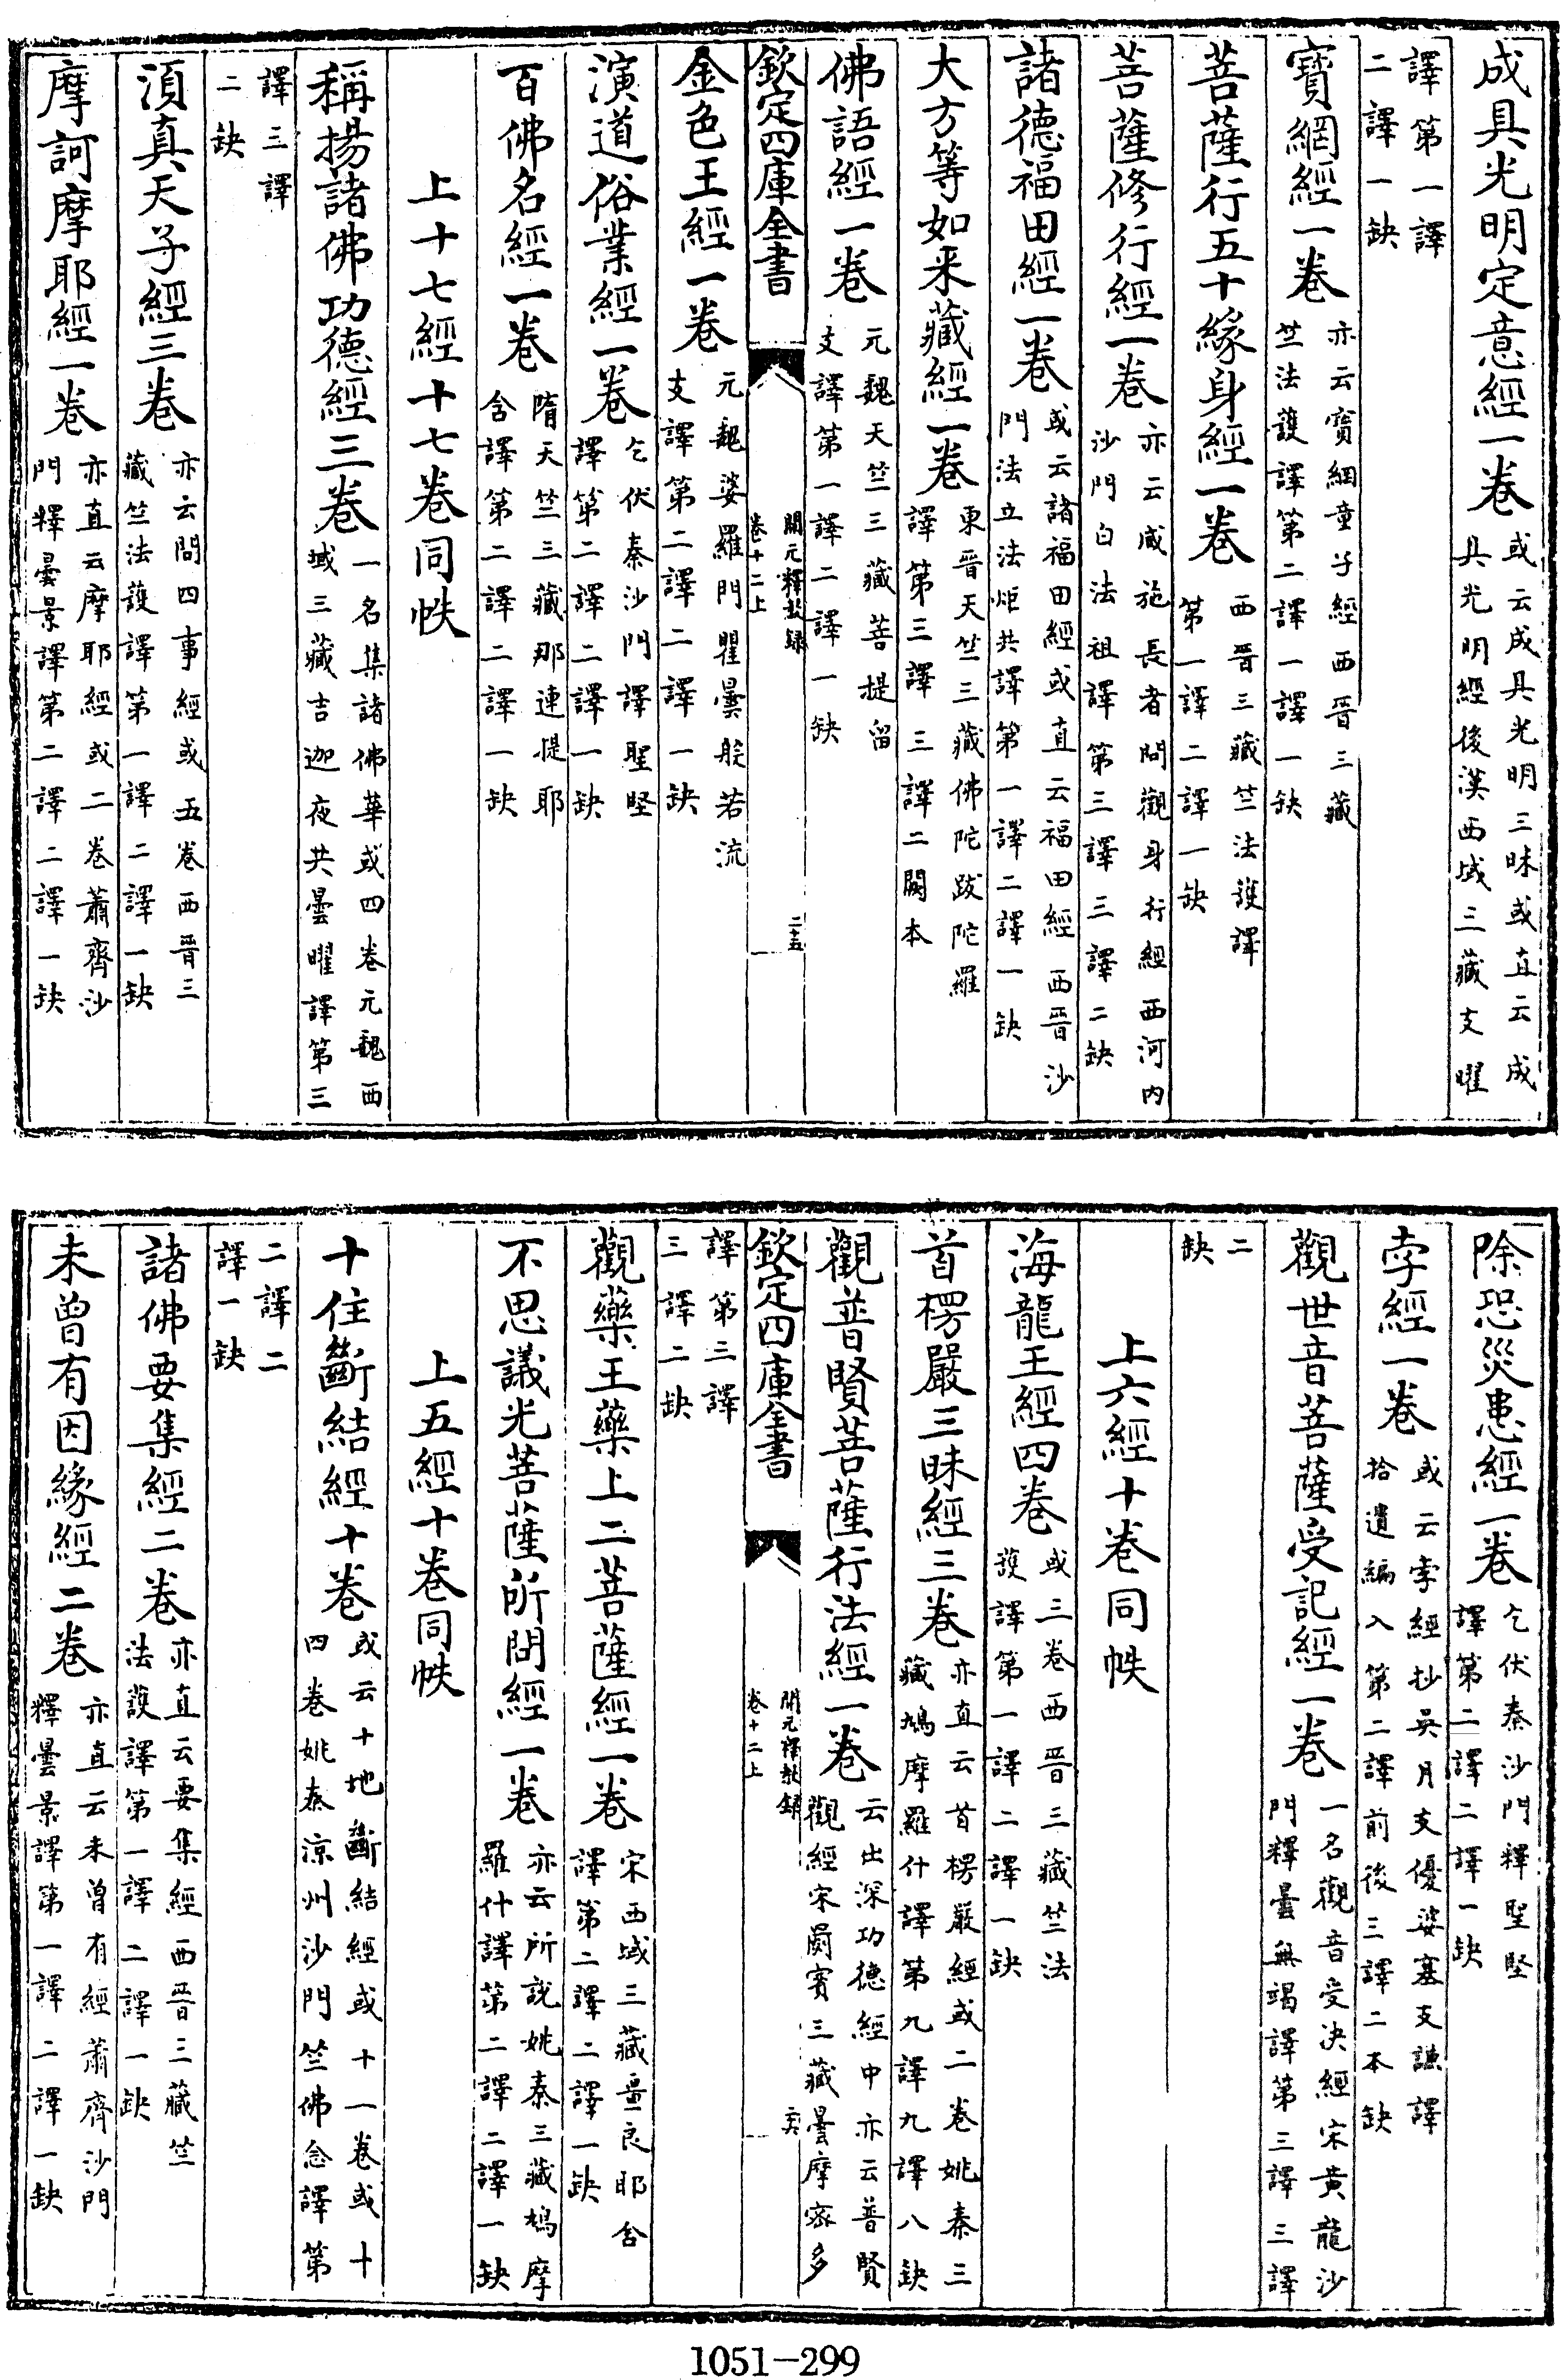 成具光明定意經一卷或云成具光明三昧或直云成具光明經後漢西域三藏支曜
譯第一譯二譯一缺
寳網經一卷亦云寳網童子經西晉三藏竺法護譯第二譯一譯一缺
菩薩行五十緣身經一卷西晉三藏竺法護譯第一譯二譯一缺
菩薩修行經一卷亦云威施長者問觀身行經西河内沙門白法祖譯第三譯三譯二缺
諸德福田經一卷或云諸福田經或直云福田經西晉沙門法立法炬共譯第一譯二譯一缺
大方等如來藏經一卷東晉天竺三藏佛陀跋陀羅譯第三譯三譯二闕本
佛語經一卷元魏天竺三藏菩提留支譯第一譯二譯一缺
欽定四庫全書 開元釋教録卷十二上 二十五
金色王經一卷元魏婆羅門瞿曇般若流支譯第二譯二譯一缺
演道俗業經一卷乞伏秦沙門譯聖堅譯第二譯二譯一缺
百佛名經一卷隋天竺三藏那連提耶舍譯第二譯二譯一缺
上十七經十七卷同帙
稱揚諸佛功德經三卷一名集諸佛華或四卷元魏西域三藏吉迦夜共曇曜譯第三
譯三譯二缺
湏真天子經三卷亦云問四事經或五卷西晉三藏竺法護譯第一譯二譯一缺
摩訶摩耶經一卷亦直云摩耶經或二卷蕭齊沙門釋曇景譯第二譯二譯一缺
除恐災患經一卷乞伏秦沙門釋聖堅譯第二譯二譯一缺
孛經一卷或云孛經抄吳月支優婆塞支謙譯拾遺編入第二譯前後三譯二本缺
觀世音菩薩受記經一卷一名觀音受决經宋黄龍沙門釋曇無竭譯第三譯三譯
二缺
上六經十卷同帙
海龍王經四卷或三卷西晉三藏竺法護譯第一譯二譯一缺
首楞嚴三昧經三卷亦直云首楞嚴經或二卷姚秦三藏鳩摩羅什譯第九譯九譯八缺
觀普賢菩薩行法經一卷云出深功德經中亦云普賢觀經宋罽賓三藏曇摩宻多
欽定四庫全書 開元釋教録卷十二上 二十六
譯第三譯三譯二缺
觀藥王藥上二菩薩經一卷宋西域三藏畺良耶舍譯第二譯二譯一缺
不思議光菩薩所問經一卷亦云所説姚秦三藏鳩摩羅什譯第二譯二譯一缺
上五經十卷同帙
十住斷結經十卷或云十地斷結經或十一卷或十四卷姚秦涼州沙門竺佛念譯第
二譯二譯一缺
諸佛要集經二卷亦直云要集經西晉三藏竺法護譯第一譯二譯一缺
未曽有因緣經二卷亦直云未曽有經蕭齊沙門釋曇景譯第一譯二譯一缺
1051-299